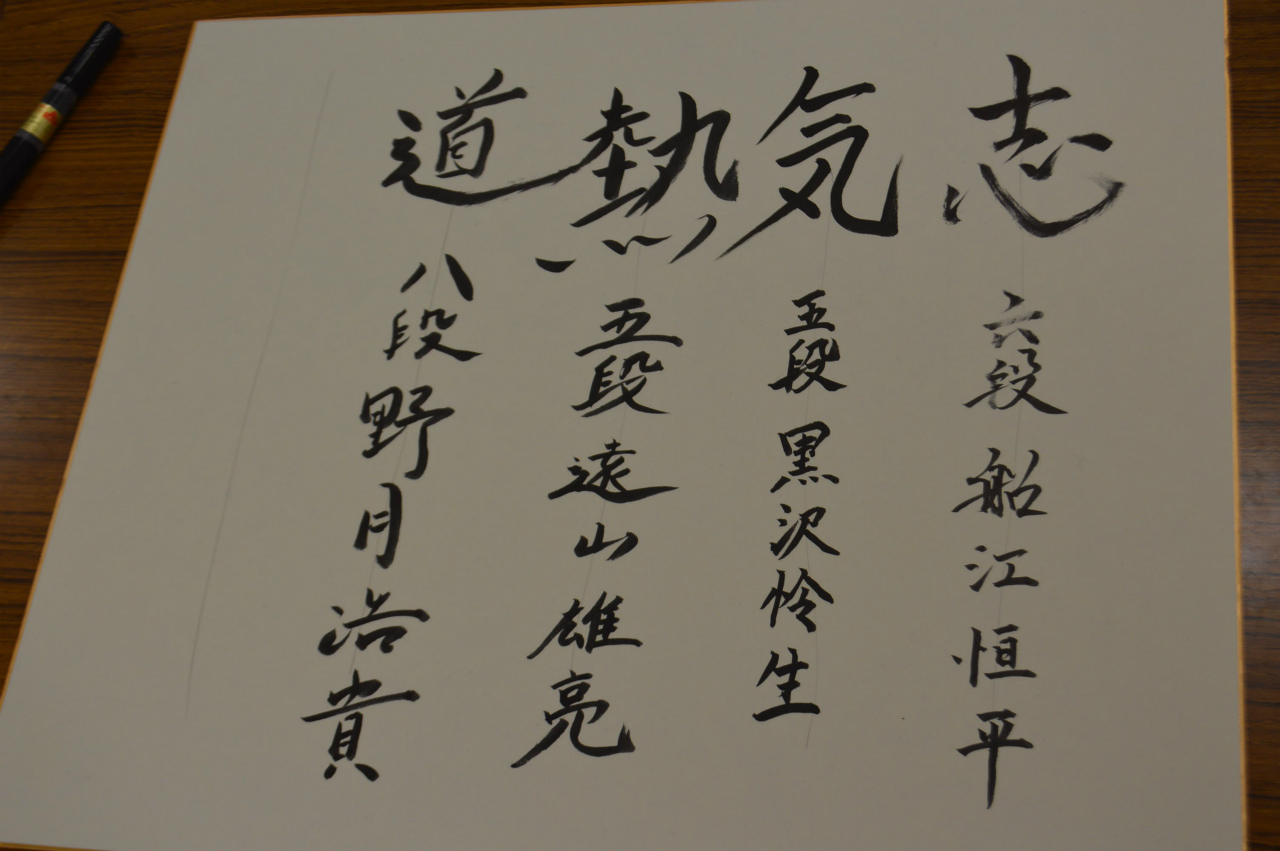 志 六段 船江恒平
気 五段 黒沢怜生
熱 五段 遠山雄亮
道 八段 野月浩貴